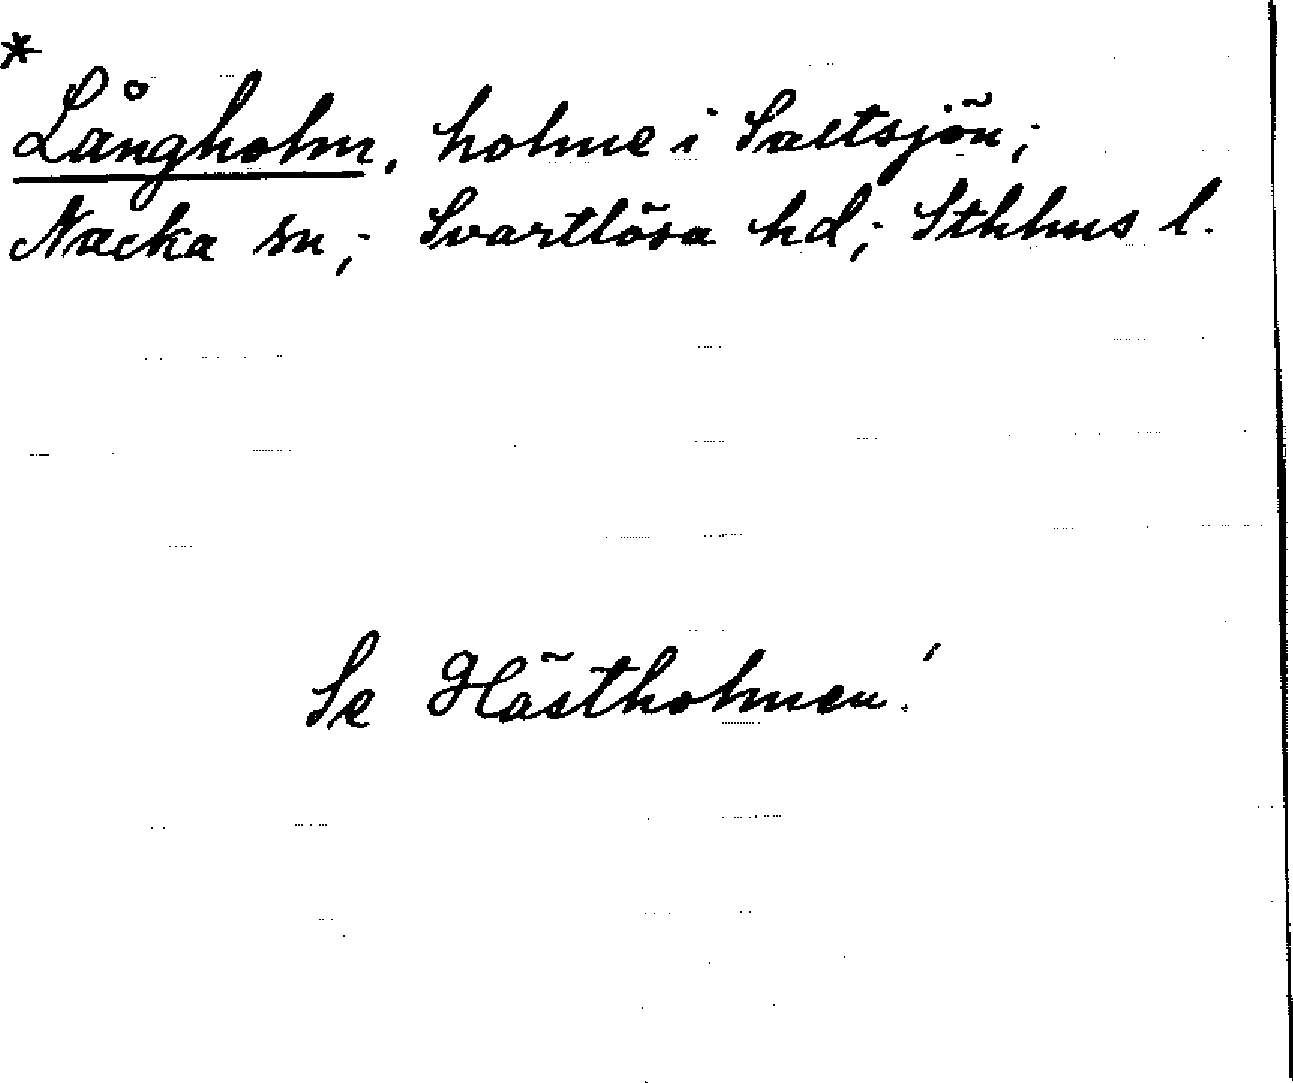 *
Långholm, holme i Saltsjön;
Nacka sn; Svartlösa hd; Sthlms l.
Se Hästholmen!